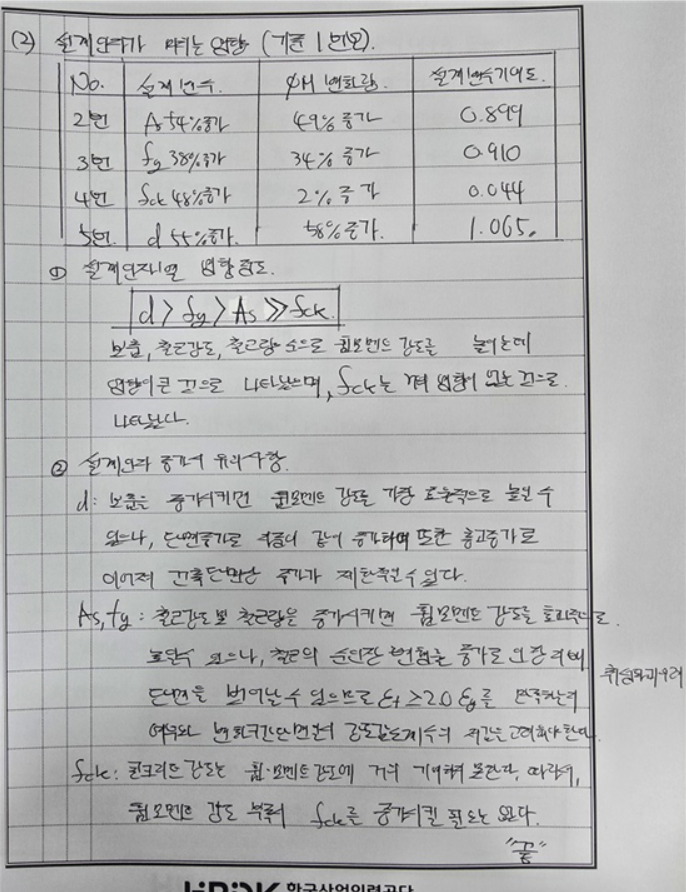 (2) 설계인자가 미치는 영향 (기준 1번보).
No. 설계변수. ϕM 변화량. 설계변수기여도.
2번 As 54%증가 49% 증가 0.899
3번 fy 38%증가 34% 증가 0.910
4번 fck 48%증가 2% 증가 0.044
5번. d 55%증가. 58%증가. 1.065.
① 설계인자별 영향정도.
d > fy > As ≫ fck.
보춤, 철근강도, 철근량 순으로 휨모멘트 강도를 높이는데
영향이 큰 것으로 나타났으며, fck는 거의 영향이 없는 것으로.
나타났다.
② 설계인자 증가시 유의사항.
d: 보춤을 증가시키면 휨모멘트 강도를 가장 효율적으로 높일 수
있으나, 단면증가로 자중이 같이 증가하며 또한 층고증가로
이어져 건축단면상 증가가 제한적일 수 있다.
As, fy : 철근강도 및 철근량을 증가시키면 휨모멘트 강도를 효과적으로.
높일수 있으나, 철근의 순인장 변형률 증가로 인장지배
단면을 벗어날 수 있으므로 εt ≥ 2.0 εy를 만족하는지
여부와 변화구간단면에서 강도감소계수의 저감을 고려해야 한다.
취성파괴우려
fck: 콘크리트 강도는 휨모멘트강도에 거의 기여하지 못한다, 따라서,
휨모멘트 강도 부족시 fck를 증가시킬 필요는 없다.
"끝"
한국산업인력공단